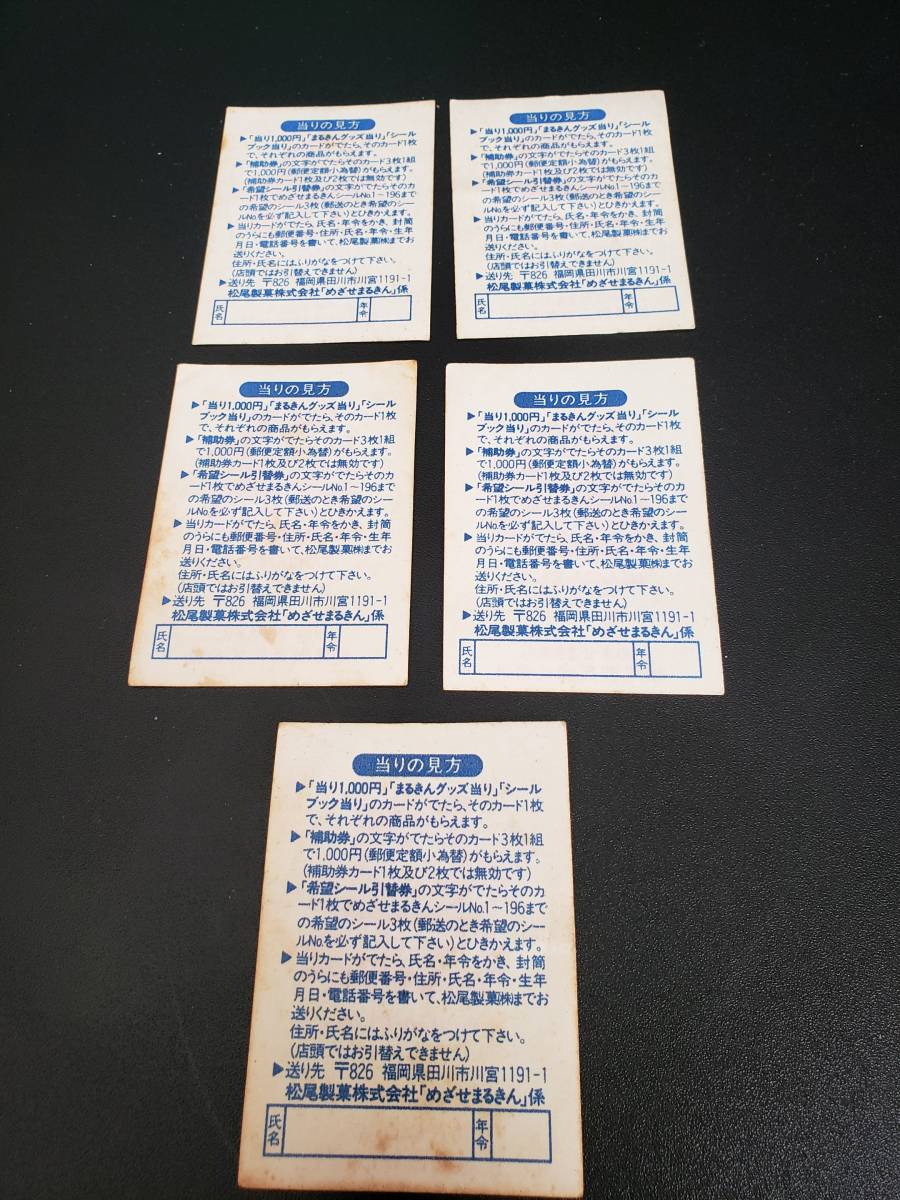 当りの見方
▶「当り1,000円」「まるきんグッズ当り」「シール
ブック当り」のカードがでたら、そのカード1枚
で、それぞれの商品がもらえます。
▶「補助券」の文字がでたらそのカード3枚1組
で1,000円(郵便定額小為替)がもらえます。
(補助券カード1枚及び2枚では無効です)
▶「希望シール引替券」の文字がでたらそのカ
ード1枚でめざせまるきんシールNo.1〜196まで
の希望のシール3枚(郵送のとき希望のシー
ルNo.を必ず記入して下さい)とひきかえます。
▶当りカードがでたら、氏名・年令をかき、封筒
のうらにも郵便番号・住所・氏名・年令・生年
月日・電話番号を書いて、松尾製菓㈱までお
送りください。
住所・氏名にはふりがなをつけて下さい。
(店頭ではお引替えできません)
▶送り先 〒826 福岡県田川市川宮1191-1
松尾製菓株式会社「めざせまるきん」係
氏名 年令
当りの見方
▶「当り1,000円」「まるきんグッズ当り」「シール
ブック当り」のカードがでたら、そのカード1枚
で、それぞれの商品がもらえます。
▶「補助券」の文字がでたらそのカード3枚1組
で1,000円(郵便定額小為替)がもらえます。
(補助券カード1枚及び2枚では無効です)
▶「希望シール引替券」の文字がでたらそのカ
ード1枚でめざせまるきんシールNo.1〜196まで
の希望のシール3枚(郵送のとき希望のシー
ルNo.を必ず記入して下さい)とひきかえます。
▶当りカードがでたら、氏名・年令をかき、封筒
のうらにも郵便番号・住所・氏名・年令・生年
月日・電話番号を書いて、松尾製菓㈱までお
送りください。
住所・氏名にはふりがなをつけて下さい。
(店頭ではお引替えできません)
▶送り先 〒826 福岡県田川市川宮1191-1
松尾製菓株式会社「めざせまるきん」係
氏名 年令
当りの見方
▶「当り1,000円」「まるきんグッズ当り」「シール
ブック当り」のカードがでたら、そのカード1枚
で、それぞれの商品がもらえます。
▶「補助券」の文字がでたらそのカード3枚1組
で1,000円(郵便定額小為替)がもらえます。
(補助券カード1枚及び2枚では無効です)
▶「希望シール引替券」の文字がでたらそのカ
ード1枚でめざせまるきんシールNo.1〜196まで
の希望のシール3枚(郵送のとき希望のシー
ルNo.を必ず記入して下さい)とひきかえます。
▶当りカードがでたら、氏名・年令をかき、封筒
のうらにも郵便番号・住所・氏名・年令・生年
月日・電話番号を書いて、松尾製菓㈱までお
送りください。
住所・氏名にはふりがなをつけて下さい。
(店頭ではお引替えできません)
▶送り先 〒826 福岡県田川市川宮1191-1
松尾製菓株式会社「めざせまるきん」係
氏名 年令
当りの見方
▶「当り1,000円」「まるきんグッズ当り」「シール
ブック当り」のカードがでたら、そのカード1枚
で、それぞれの商品がもらえます。
▶「補助券」の文字がでたらそのカード3枚1組
で1,000円(郵便定額小為替)がもらえます。
(補助券カード1枚及び2枚では無効です)
▶「希望シール引替券」の文字がでたらそのカ
ード1枚でめざせまるきんシールNo.1〜196まで
の希望のシール3枚(郵送のとき希望のシー
ルNo.を必ず記入して下さい)とひきかえます。
▶当りカードがでたら、氏名・年令をかき、封筒
のうらにも郵便番号・住所・氏名・年令・生年
月日・電話番号を書いて、松尾製菓㈱までお
送りください。
住所・氏名にはふりがなをつけて下さい。
(店頭ではお引替えできません)
▶送り先 〒826 福岡県田川市川宮1191-1
松尾製菓株式会社「めざせまるきん」係
氏名 年令
当りの見方
▶「当り1,000円」「まるきんグッズ当り」「シール
ブック当り」のカードがでたら、そのカード1枚
で、それぞれの商品がもらえます。
▶「補助券」の文字がでたらそのカード3枚1組
で1,000円(郵便定額小為替)がもらえます。
(補助券カード1枚及び2枚では無効です)
▶「希望シール引替券」の文字がでたらそのカ
ード1枚でめざせまるきんシールNo.1〜196まで
の希望のシール3枚(郵送のとき希望のシー
ルNo.を必ず記入して下さい)とひきかえます。
▶当りカードがでたら、氏名・年令をかき、封筒
のうらにも郵便番号・住所・氏名・年令・生年
月日・電話番号を書いて、松尾製菓㈱までお
送りください。
住所・氏名にはふりがなをつけて下さい。
(店頭ではお引替えできません)
▶送り先 〒826 福岡県田川市川宮1191-1
松尾製菓株式会社「めざせまるきん」係
氏名 年令